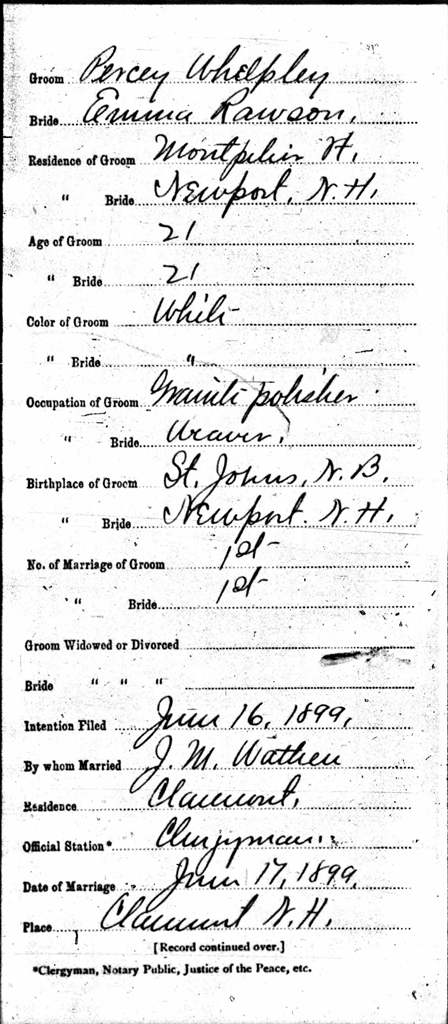 Groom Percey Whelpley
Bride Emma Rawson.
Residence of Groom Montpelier Vt.
" Bride Newport, N.H.
Age of Groom 21
" Bride 21
Color of Groom White
" Bride "
Occupation of Groom Granite polisher
" Bride Weaver.
Birthplace of Groom St. Johns, N.B.
" Bride Newport. N.H.
No. of Marriage of Groom 1st
" Bride 1st
Groom Widowed or Divorced
Bride " " "
Intention Filed June 16, 1899.
By whom Married J. M. Wathen
Residence Claremont.
Official Station* Clergyman.
Date of Marriage June 17, 1899.
Place Claremont N.H.
[Record continued over.]
*Clergyman, Notary Public, Justice of the Peace, etc.